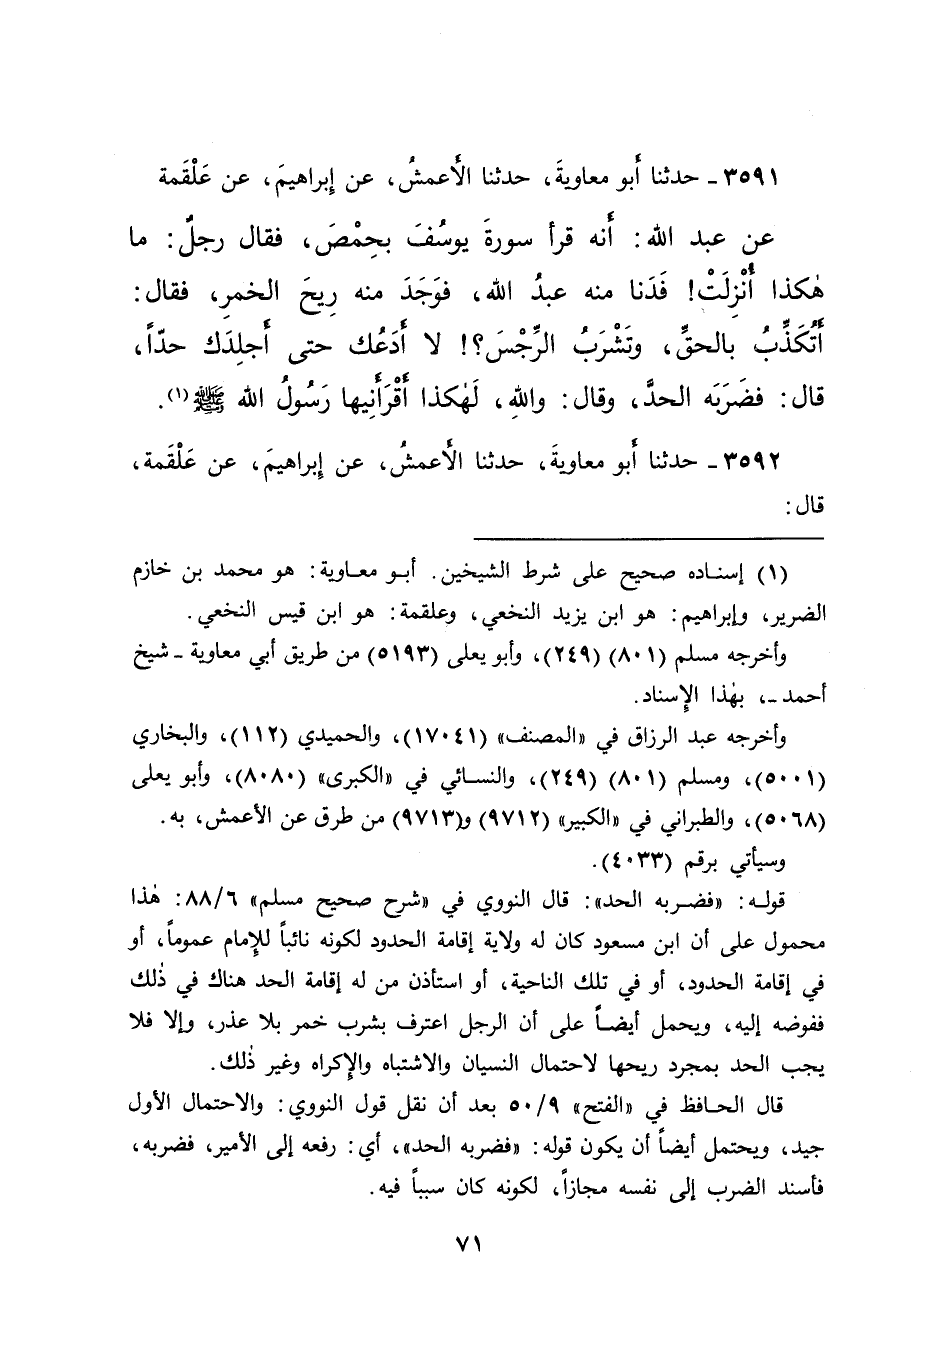 ٣٥٩١ ـ حدثنا أَبو معاويةَ، حدثنا الأَعمشُ، عن إِبراهيمَ، عن عَلْقَمة
عن عبد الله: أَنه قرأ سورةَ يوسُفَ بحِمْصَ، فقال رجلٌ: ما
هٰكذا أُنْزِلَتْ! فَدَنا منه عبدُ الله، فوَجَدَ منه رِيحَ الخمرِ، فقال:
أَتُكَذِّبُ بالحقِّ، وتَشْرَبُ الرِّجْسَ؟! لا أَدَعُك حتى أَجلِدَك حدّاً،
قال: فضَرَبَه الحدَّ، وقال: واللهِ، لَهٰكذا أَقْرَأَنِيها رَسُولُ الله ﷺ(١).
٣٥٩٢ ـ حدثنا أَبو معاويةَ، حدثنا الأَعمشُ، عن إِبراهيمَ، عن عَلْقَمة،
قال:
(١) إسناده صحيح على شرط الشيخين. أبو معاوية: هو محمد بن خازم
الضرير، وإبراهيم: هو ابن يزيد النخعي، وعلقمة: هو ابن قيس النخعي.
وأخرجه مسلم (٨٠١) (٢٤٩)، وأبو يعلى (٥١٩٣) من طريق أبي معاوية ـ شيخ
أحمد ـ، بهٰذا الإِسناد.
وأخرجه عبد الرزاق في «المصنف» (١٧٠٤١)، والحميدي (١١٢)، والبخاري
(٥٠٠١)، ومسلم (٨٠١) (٢٤٩)، والنسائي في «الكبرى» (٨٠٨٠)، وأبو يعلى
(٥٠٦٨)، والطبراني في «الكبير» (٩٧١٢) و(٩٧١٣) من طرق عن الأعمش، به.
وسيأتي برقم (٤٠٣٣).
قوله: «فضربه الحد»: قال النووي في «شرح صحيح مسلم» ٨٨/٦: هٰذا
محمول على أن ابن مسعود كان له ولاية إقامة الحدود لكونه نائباً للإِمام عموماً، أو
في إقامة الحدود، أو في تلك الناحية، أو استأذن من له إقامة الحد هناك في ذٰلك
ففوضه إليه، ويحمل أيضاً على أن الرجل اعترف بشرب خمر بلا عذر، وإلا فلا
يجب الحد بمجرد ريحها لاحتمال النسيان والاشتباه والإِكراه وغير ذٰلك.
قال الحافظ في «الفتح» ٥٠/٩ بعد أن نقل قول النووي: والاحتمال الأول
جيد، ويحتمل أيضاً أن يكون قوله: «فضربه الحد»، أي: رفعه إلى الأمير، فضربه،
فأسند الضرب إلى نفسه مجازاً، لكونه كان سبباً فيه.
٧١